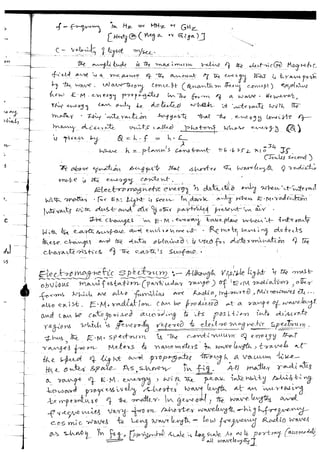 f - frequency in Hz or MHz or GHz
[Hertz @ (Mega or Giga)]
C - velocity of light m/sec.
The amplitude is the maximum value of the electric @ magnetic
field and is a measure of the amount of the energy that is transported
by the wave. Wave theory concept (Quantum theory concept) explains
how E.M. energy propagates in the form of a wave. However,
this energy can only be detected when it interacts with the
matter. This interaction suggests that the energy consists of
many discrete units called photons whose energy (Q)
is given by Q = h.f = h.
where h = plank's constant =
(Joules second)
The above equation suggests that shorter the wavelength of radiation
more is the energy content.
Electromagnetic energy is detected only when it interacts
with matter. For Ex: light is seen in dark only when E.M. radiation
interacts with dust and other particles present in air.
The changes in E.M. energy take place when it interacts
with the earth surface and environment. Remote sensing detects
these changes and the data obtained is used for determination of the
characteristics of the earth's surface.
Electromagnetic Spectrum :- Although visible light is the most
obvious manifestation (particular range) of E.M. radiation, other
forms which are also familiar are Radio, Infrared, Microwaves etc..
also exist. E.M. radiation can be produced at a range of wavelengths
and can be categorised according to its position into discrete
regions which is generally referred to electromagnetic spectrum.
Thus the E.M. spectrum is the continuum of energy that
ranges from meters to nanometers in wavelength, travels at
the speed of light and propagates through a vacuum like
the outer space. As shown in fig. All matter radiates
a range of E.M. energy, with the peak intensity shifting
toward progressively shorter wave length at an increasing
temperature of the matter. In general, the wave lengths and
frequencies vary from shorter wavelength - high frequency
cosmic waves to long wavelength - low frequency Radio waves
as shown in fig.
all wavelengths]